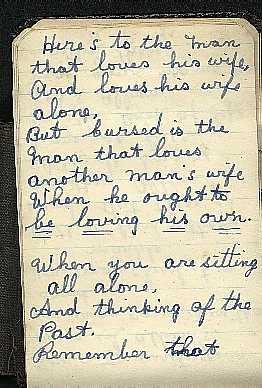 Here's to the man
that loves his wife,
And loves his wife
alone,
But bursed is the
man that loves
another man's wife
When he ought to
be loving his own.
When you are sitting
all alone,
And thinking of the
Past.
Remember that